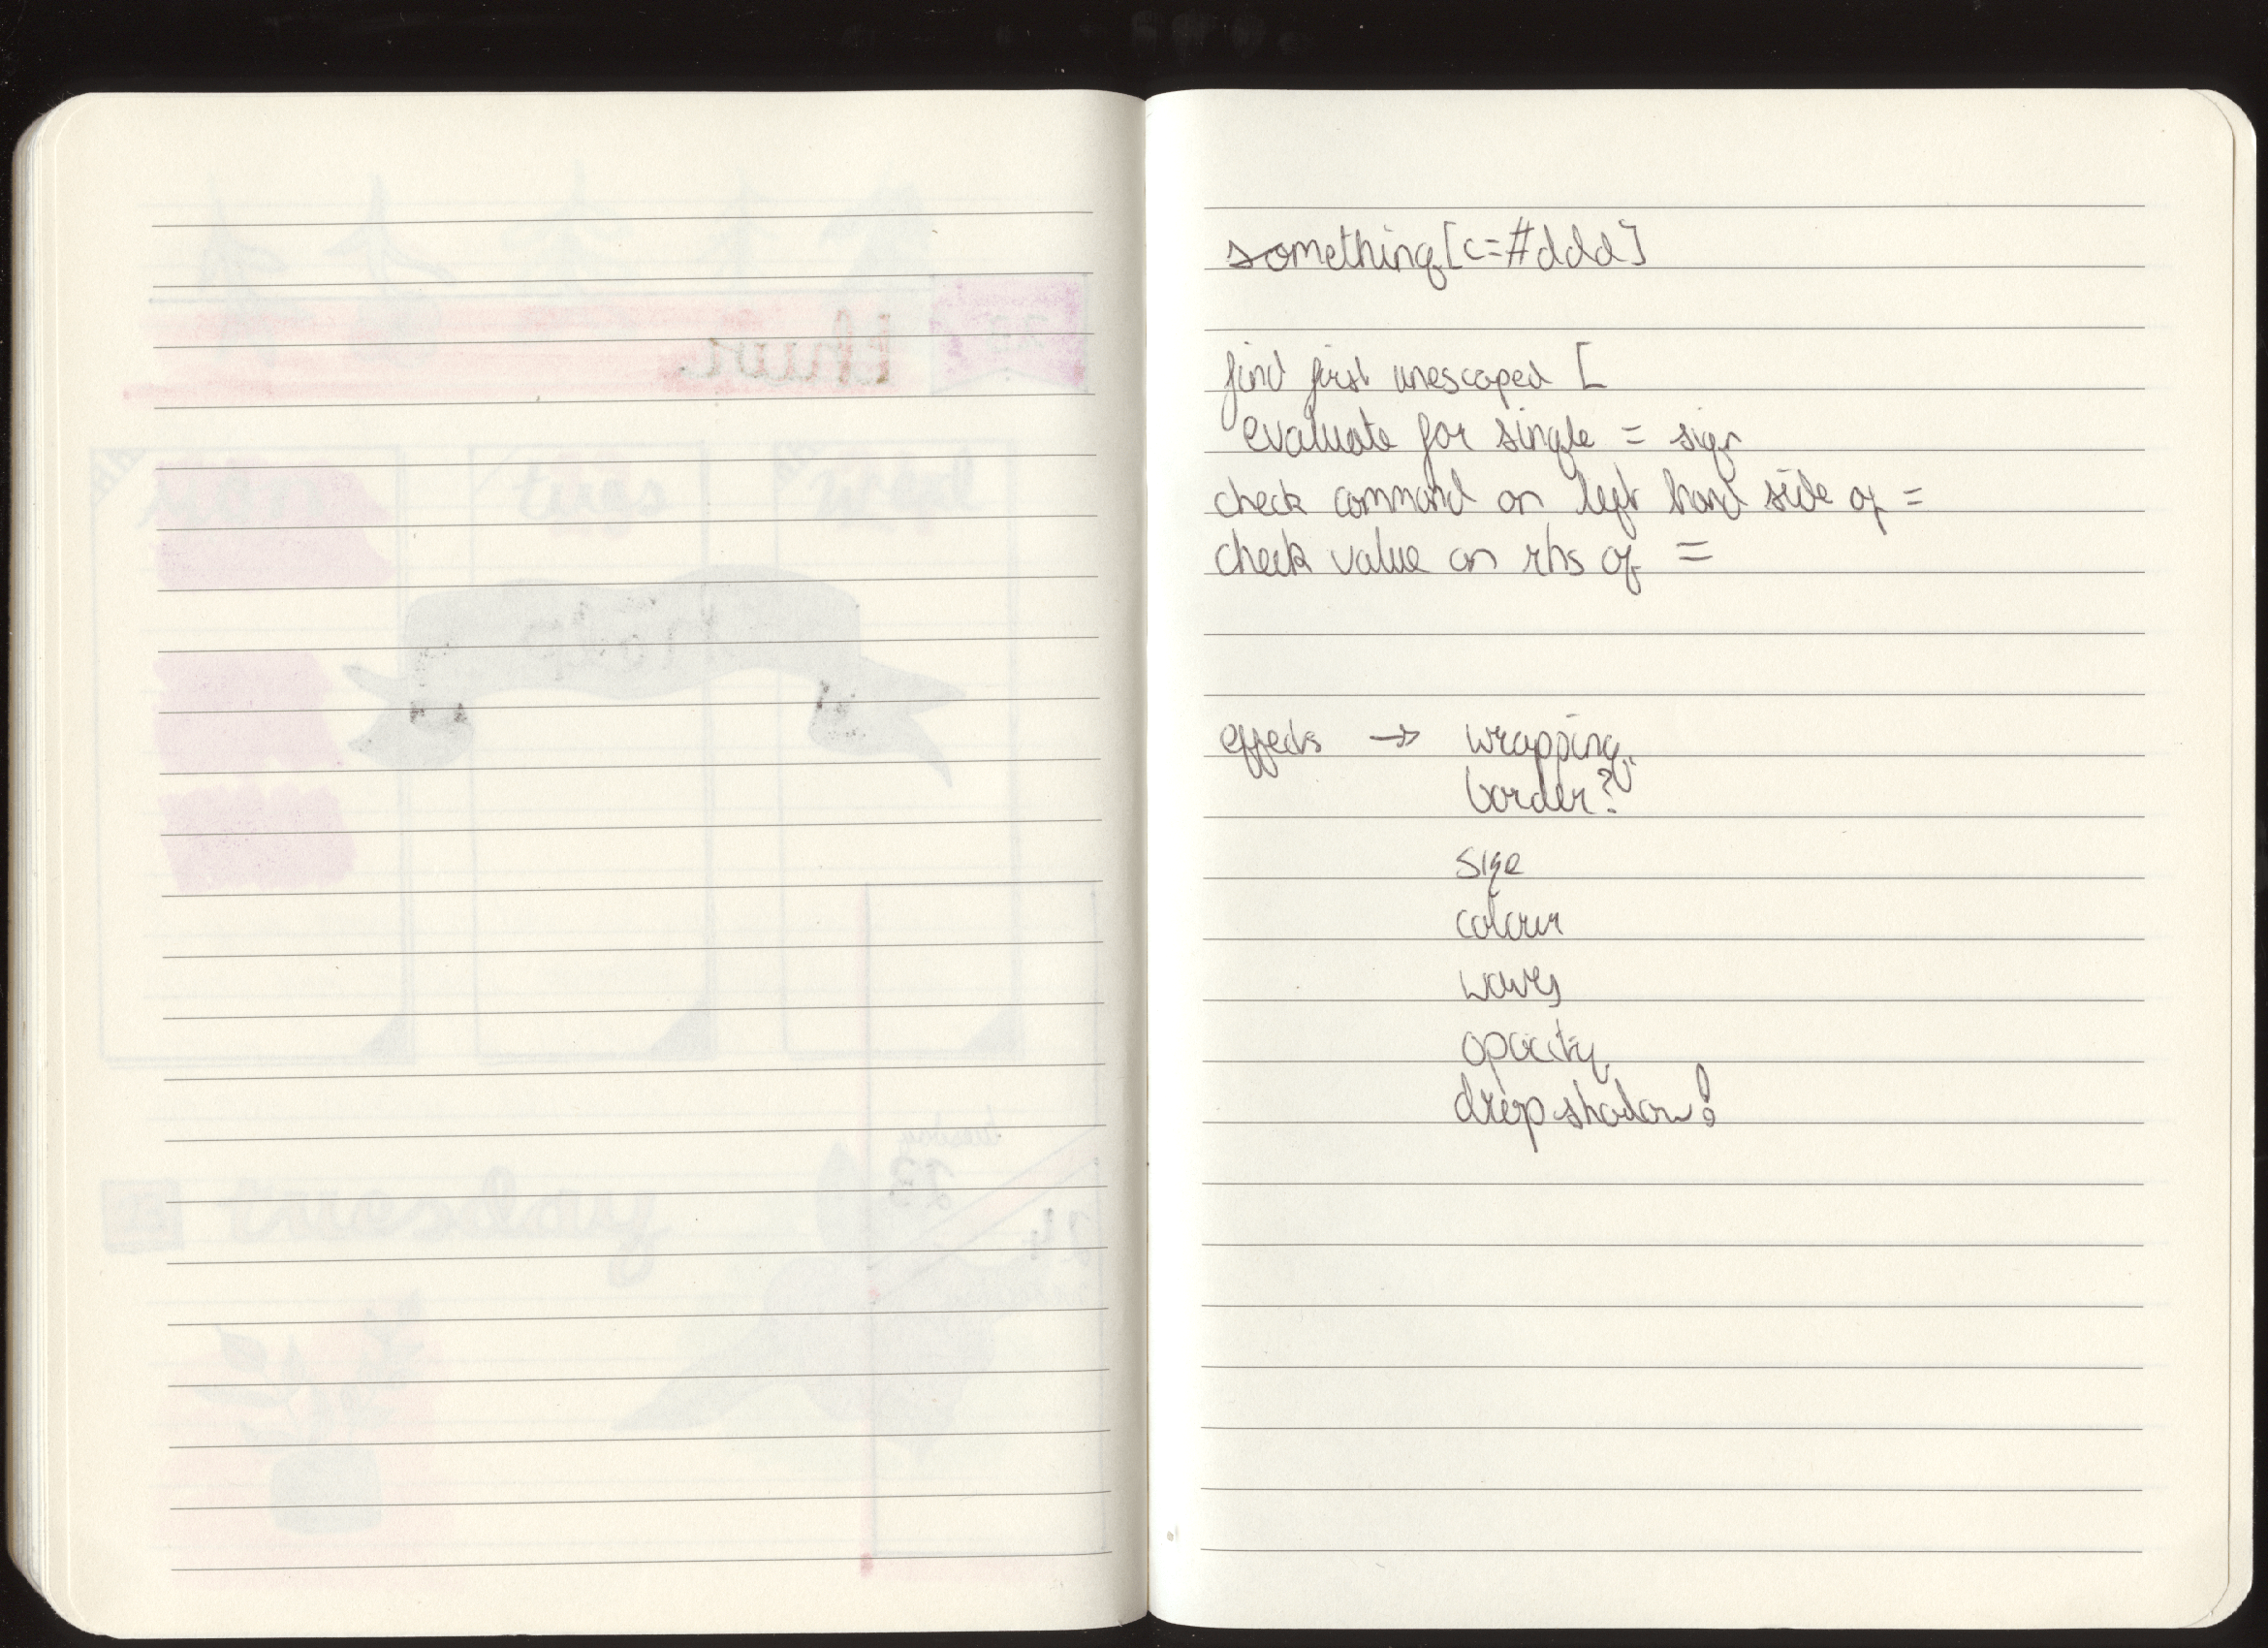 something[c=#ddd]
find first unescaped [
evaluate for single = sign
check command on left hand side of =
check value on rhs of =
effects → wrapping
border?
size
colour
waves
opacity
drop shadow?
tuesday
23
24